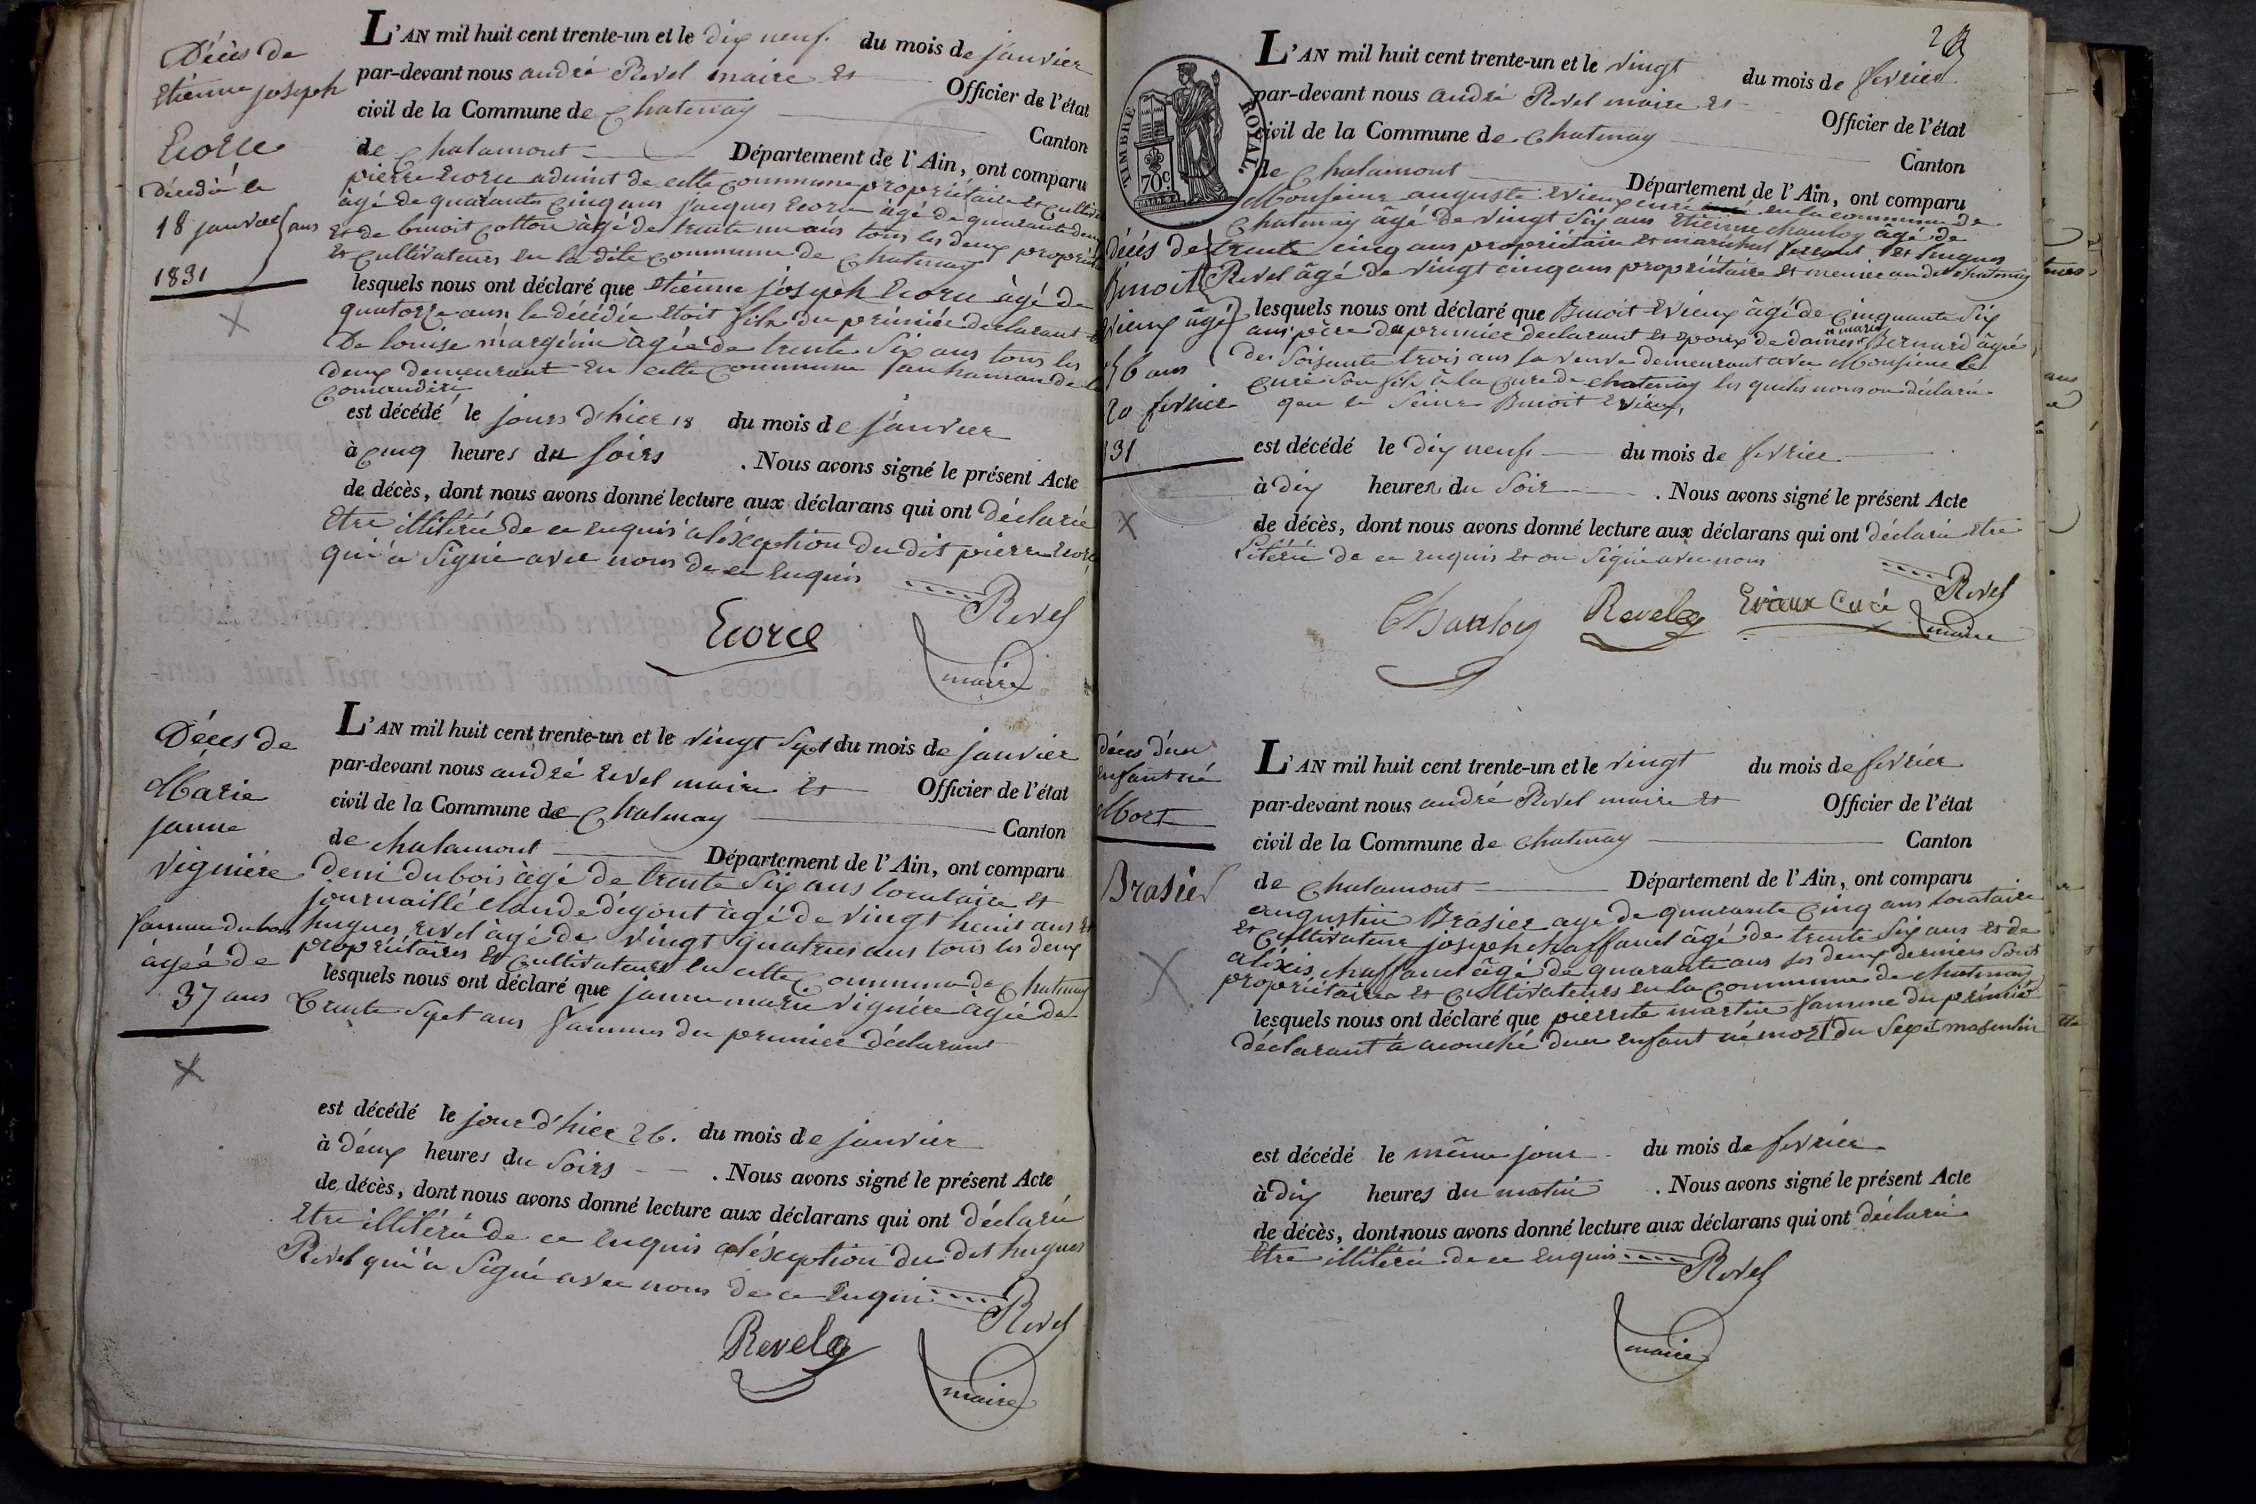 Décès de
Etienne joseph
Ecorce
décédé le
18 janvier
ans
1831
L'AN mil huit cent trente-un et le dix neuf du mois de janvier
par-devant nous andré Revel maire et Officier de l'état
civil de la Commune de Chatenay Canton
de Chalamont Département de l'Ain, ont comparu
pierre Ecorce adjoint de cette commune propriétaire et
âgé de quarante cinq ans jacques Ecorce âgé de quarante deux
et de benoit cotton âgé de trente un ans tous les deux
et cultivateurs en la dite commune de Chatenay
lesquels nous ont déclaré que etienne joseph Ecorce âgé de
quatorze ans, le décédée etoit fils du prémiée declarant et
De louise margérie âgée de trente Six ans tous les
deux demeurant En cette commune
est décédé le jours d'hier 18 du mois de janvier
à cinq heures du soirs . Nous avons signé le présent Acte
de décès, dont nous avons donné lecture aux déclarans qui ont déclaré
Etre illitéré de ce enquis à léxception du dit pierre Ecorce
qui à Signé avec nous de ce Enquis
Revel
Ecorce
maire
Décès de
Marie
janne
Vignière
famme dubois
âgée de
37 ans
L'AN mil huit cent trente-un et le vingt Sept du mois de janvier
par-devant nous andré revel maire et Officier de l'état
civil de la Commune de Chatenay Canton
de chalamont Département de l'Ain, ont comparu
deni dubois âgé de trente Six ans locataire et
journaillé claude dégout âgé de vingt heuit ans et
hugues revel âgé de vingt quatres ans tous les deux
propriétaires et cultivateurs en cette commune de Chatenay
lesquels nous ont déclaré que janne marie vignière âgée de
trente Sept ans famme du premier déclarant
est décédé le jour d'hier 26. du mois de janvier
à deux heures du Soirs . Nous avons signé le présent Acte
de décès, dont nous avons donné lecture aux déclarans qui ont déclaré
Etre illitéré de ce enquis a léxception du dit hugues
Revel qui à Signé avec nous de ce Enquis
Revel
Revel
maire
TIMBRE ROYAL.
70c.
2
L'AN mil huit cent trente-un et le vingt du mois de fevrier
par-devant nous andré Revel maire et Officier de l'état
civil de la Commune de Chatenay Canton
de Chalamont Département de l'Ain, ont comparu
Monseiur auguste Evieux curé en la commune de
Chatenay âgé de vingt Six ans Etienne chanloy âgé de
trente cinq ans propriétaire et maréchal ferrant et hugues
Revel âgé de vingt cinq ans propriétaire et meunier au dit chatenay
décés de
Binoit
Evieux âgé
56 ans
20 fevrier
31
lesquels nous ont déclaré que Benoit Evieux âgé de cinquante Six
ans père du premier declarant et epoux de dame marie Bernard âgée
de Soisante trois ans sa veuve demeurant avec Monsieur le
curé Son fils à la cure de chatenay les quels nous on déclaré
que le Seiur Benoit Evieux,
est décédé le dix neuf du mois de fevrier
à dix heures du Soir . Nous avons signé le présent Acte
de décès, dont nous avons donné lecture aux déclarans qui ont déclaré etre
Litéré de ce enquis et on Signé avec nous
Revel
Chanloy Revel Evieux Curé
maire
décés d'un
enfant né
Mort
Brasier
L'AN mil huit cent trente-un et le vingt du mois de fevrier
par-devant nous andré Revel maire et Officier de l'état
civil de la Commune de Chatenay Canton
de Chalamont Département de l'Ain, ont comparu
augustin Brasier age de quarante cinq ans locataire
et cultivateur joseph chaffanel âgé de trente Six ans et de
alixis chaffanel âgé de quarante ans les deux derniers Sont
propriétaires et cultivateurs en la commune de chatenay
lesquels nous ont déclaré que pierrete martin famme du prémier
déclarant à acouché d'un enfant né mort du Sexe masculin
est décédé le même jour du mois de fevrier
à dix heures du matin . Nous avons signé le présent Acte
de décès, dont nous avons donné lecture aux déclarans qui ont déclaré
Etre illitéré de ce enquis
Revel
maire